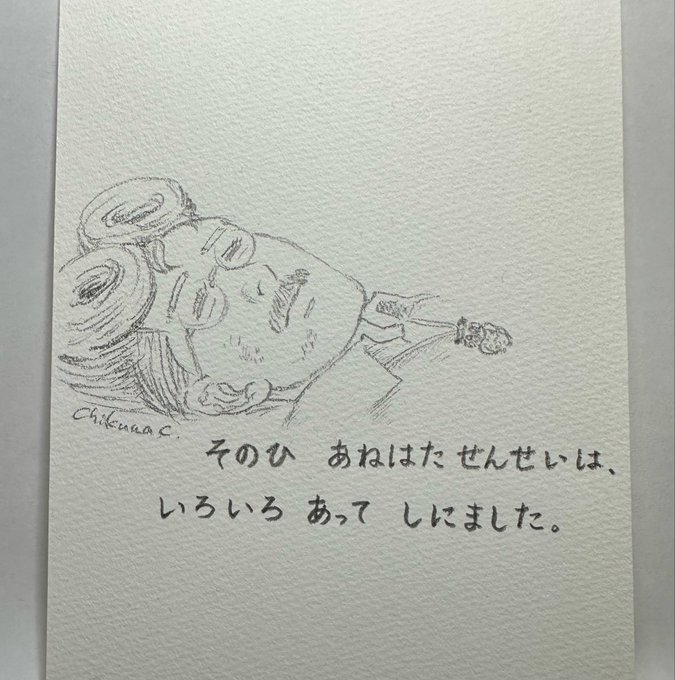 そのひ あねはた せんせいは、
いろいろ あって しにました。